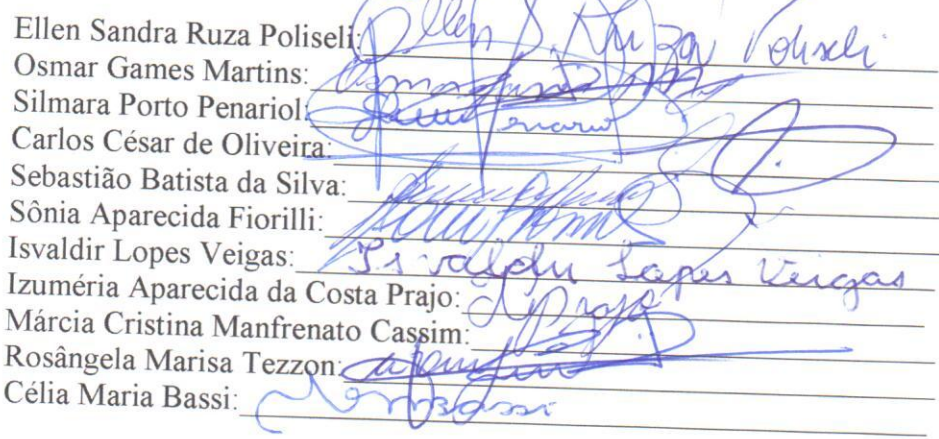 Ellen Sandra Ruza Poliseli: Ellen S. Ruza Poliseli
Osmar Games Martins:
Silmara Porto Penariol:
Carlos César de Oliveira:
Sebastião Batista da Silva:
Sônia Aparecida Fiorilli:
Isvaldir Lopes Veigas: Isvaldir Lopes Veigas
Izuméria Aparecida da Costa Prajo: Prajo
Márcia Cristina Manfrenato Cassim:
Rosângela Marisa Tezzon:
Célia Maria Bassi: Bassi